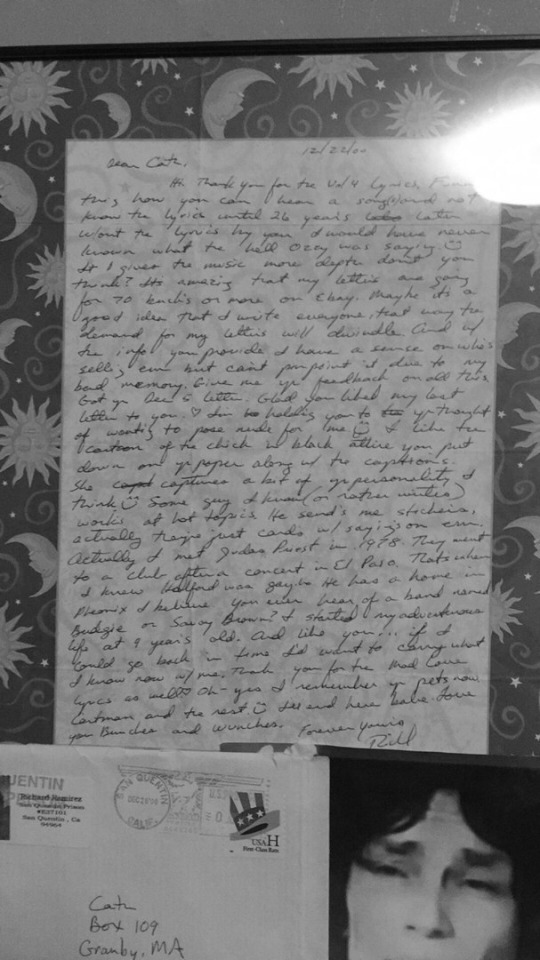 12/22/00
Dear Cath,
Hi. Thank you for the Vol 4 Lyrics. Funny
this, how you can hear a song and not
know the lyrics until 26 years later
W/out the lyrics by you I would have never
known what the hell Ozzy was saying.
It gives the music more depth don't you
think? Its amazing that my letters are going
for 70 bucks or more on Ebay. Maybe its a
good idea that I write everyone, that way the
demand for my letters will dwindle. And w/
the info you provide I have a sense on who's
selling em but cant pinpoint it due to my
bad memory. Give me yr feedback on all this.
Got yr Dec 5 letter. Glad you liked my last
letter to you. ♡ Im holding you to yr thought
of wanting to pose nude for me I like the
cartoon of the chick in black attire you put
down on yr paper along w/ the captions.
She captures a bit of yr personality I
think Some guy I know (or rather writes)
works at hot topics. He send's me stickers,
actually they're just cards w/ sayings on em.
Actually I met Judas Priest in 1978. They went
to a club after a concert in El Paso. Thats when
I knew Halford was gay. He has a home in
Pheonix I believe you ever hear of a band named
Budgie or Savoy Brown? I started my adventurous
life at 9 year's old. And like you... if I
could go back in time I'd want to carry what
I know now w/ me. Thank you for the Mad Love
lyrics as well. Oh - yes I remember yr pets now.
Cartman and the rest. I'll end here babe. Love
you Bunches and wunches. Forever yours
UENTIN
Richard Ramirez
San Quentin Prison
#E37101
San Quentin, Ca
94964
SAN QUENTIN
CALIF
USA H
First-Class Rate
Cath
Box 109
Granby, MA